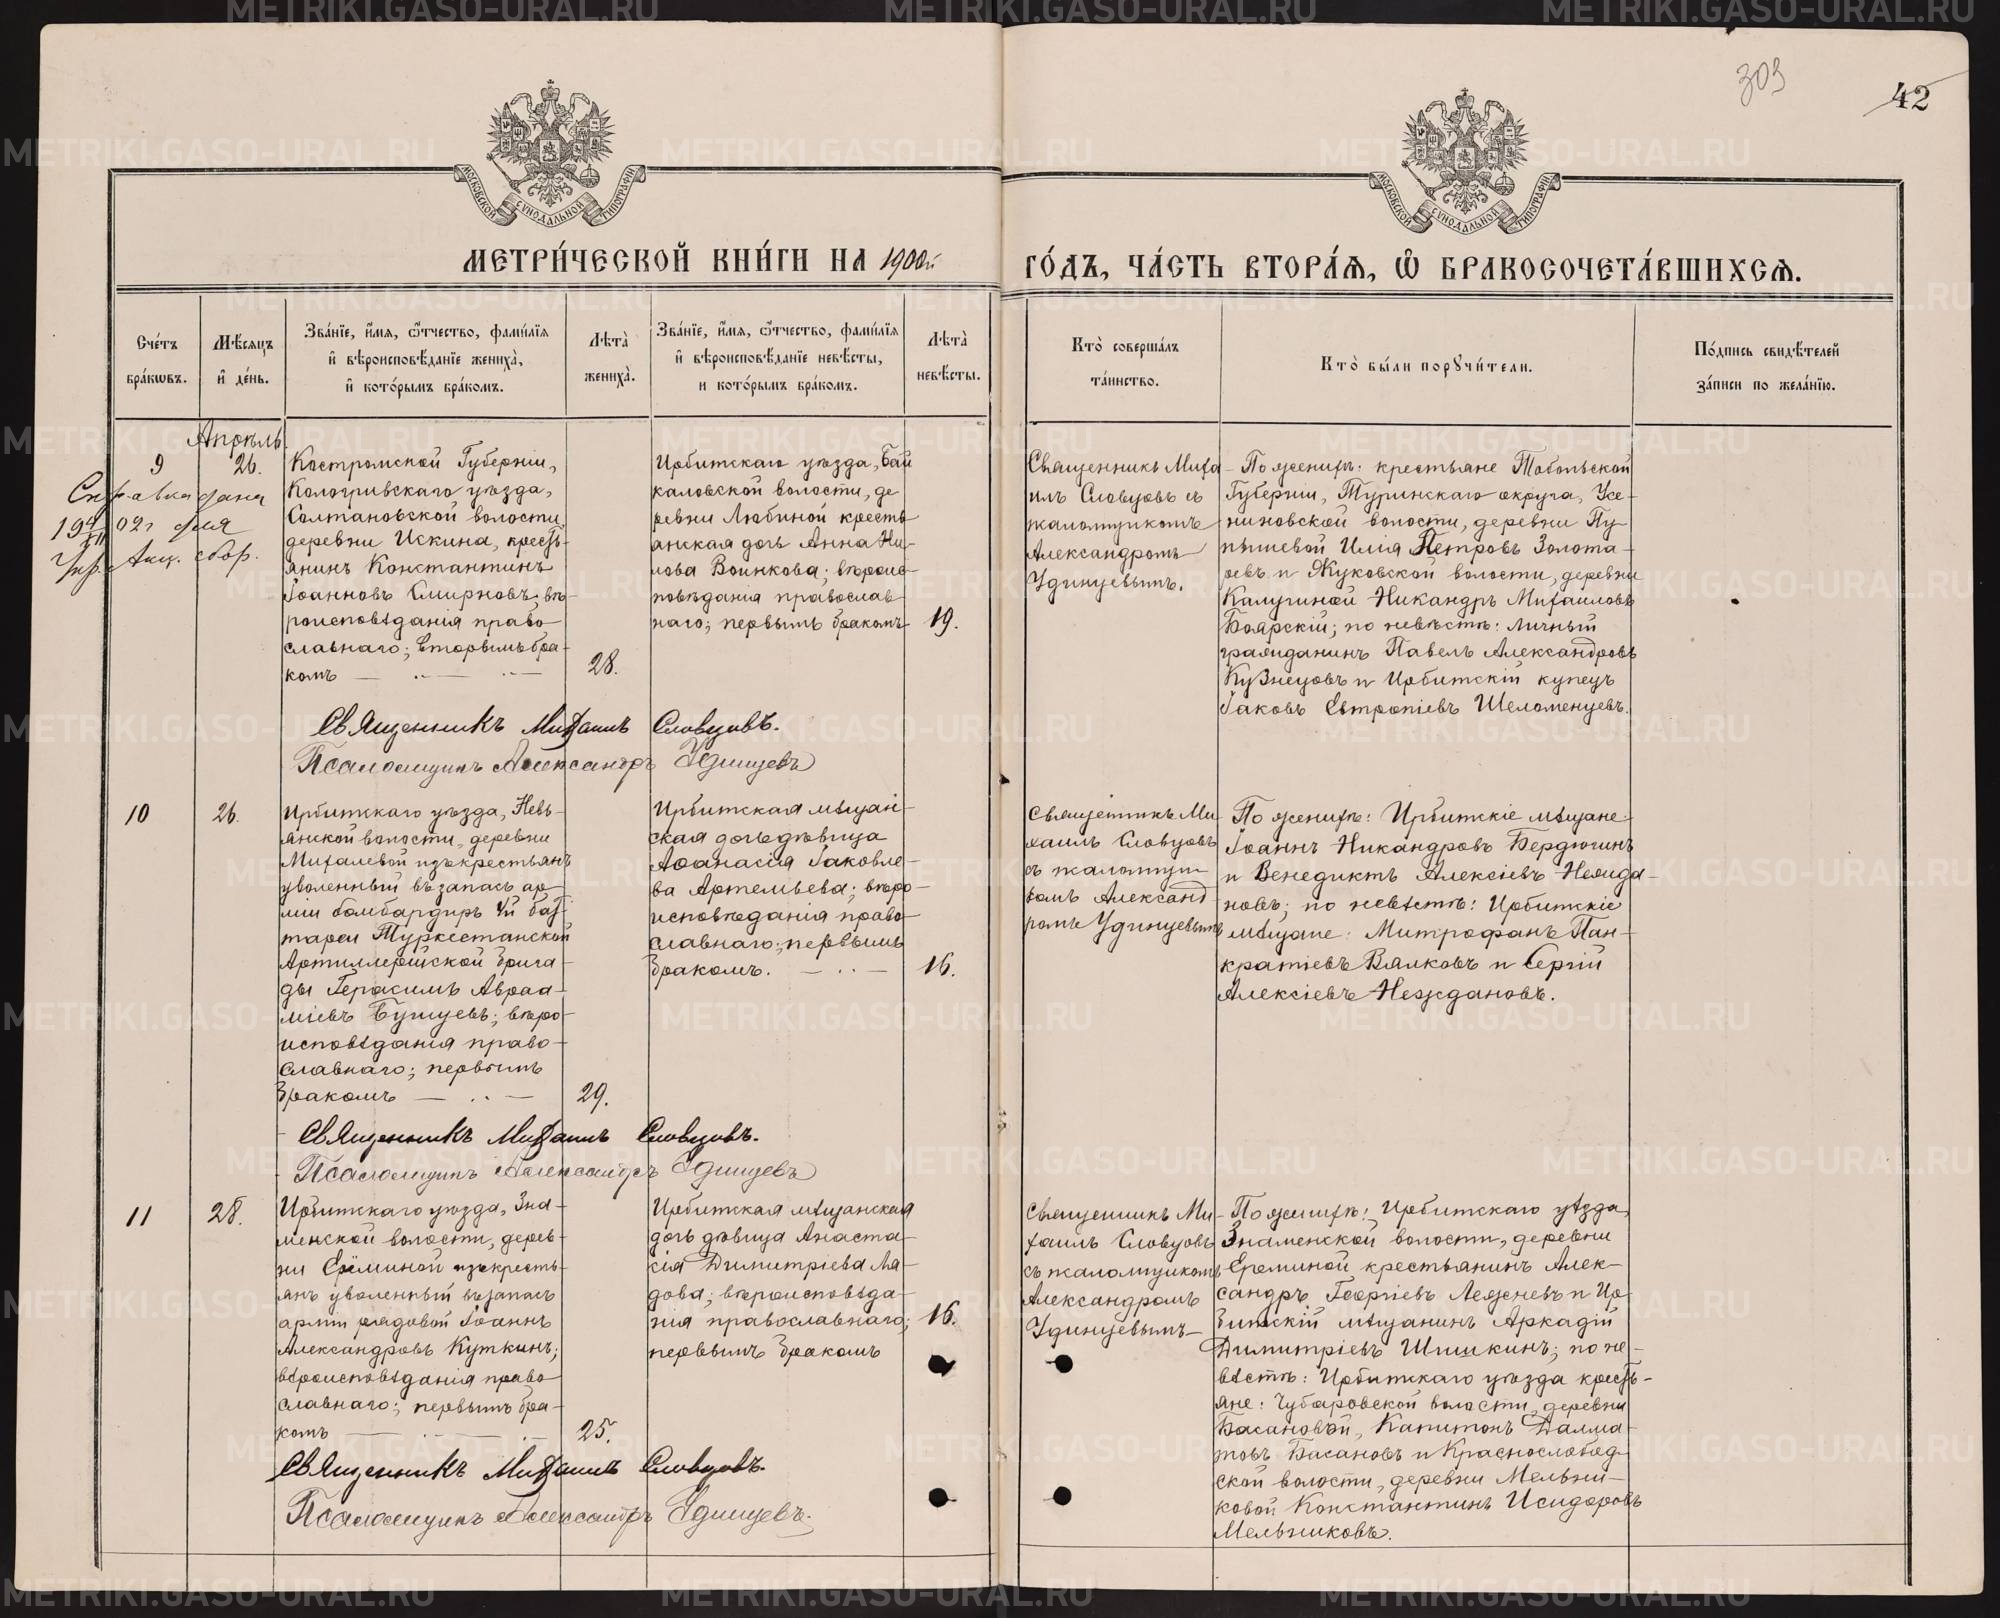 309
42
МОСКОВСКОЙ СѴНОДАЛЬНОЙ ТИПОГРАФІИ
МОСКОВСКОЙ СѴНОДАЛЬНОЙ ТИПОГРАФІИ
МЕТРИ́ЧЕСКОЙ КНИ́ГИ НА 1900й
ГО́ДЪ, ЧА́СТЬ ВТОРА́Ѧ, Ѽ БРАКОСОЧЕТА́ВШИХСѦ.
Сче́тъ бра́кѡвъ.
Мѣ́сѧцъ и҆ де́нь.
Зва́нїе, и҆́мѧ, ѻ҆́тчество, фами́лїѧ
и҆ вѣроисповѣ́данїе жениха̀,
и҆ кото́рымъ бра́комъ.
Лѣта̀ жениха̀.
Зва́нїе, и҆́мѧ, ѻ҆́тчество, фами́лїѧ
и҆ вѣроисповѣ́данїе невѣ́сты,
и кото́рымъ бра́комъ.
Лѣта̀ невѣ́сты.
Кто̀ соверша́лъ
та́инство.
Кто̀ бы́ли порꙋчи́тели.
По́дпись свидѣ́телей
за́писи по жела́нїю.
Апрѣль
9
26.
Справка дана
1902 для
Костромской Губерніи,
Кологривскаго уѣзда,
Солтановской волости,
деревни Искина, кресть-
янинъ Константинъ
Іоанновъ Смирновъ, вѣ-
роисповѣданія право
славнаго; вторымъ бра-
комъ
28.
Ирбитскаго уѣзда, Бай
каловской волости, де
ревни Любиной кресть
анская дочь Анна Ни-
лова Воинкова; вѣроис-
повѣданія православ
наго; первымъ бракомъ
19.
Священникъ Миха
илъ Словцовъ съ
псаломщикомъ
Александромъ
Удинцевымъ.
По женихѣ: крестьяне Тобольской
Губерніи, Туринскаго округа, Усе-
ниновской волости, деревни Пу-
пышевой Илія Петровъ Золота-
ревъ и Жуковской волости, деревни
Калугиной Никандръ Михаиловъ
Боярскій; по невѣстѣ: личный
гражданинъ Павелъ Александровъ
Кузнецовъ и Ирбитскій купецъ
Іаковъ Евтропіевъ Шеломенцевъ.
Священникъ Михаилъ Словцовъ.
Псаломщикъ Александръ Удинцевъ
10
26.
Ирбитскаго уѣзда, Невь-
янской волости, деревни
Михалевой изъ крестьянъ
уволенный въ запасъ ар
міи бомбардиръ 4й бат
тареи Туркестанской
Артиллерійской брига-
ды Герасимъ Авраа-
міевъ Бушуевъ; вѣро-
исповѣданія право-
славнаго; первымъ
бракомъ
29.
Ирбитская мѣщан-
ская дочь дѣвица
Аѳанасія Іаковле-
ва Артемьева; вѣро-
исповѣданія право-
славнаго; первымъ
бракомъ.
16.
Священникъ Ми-
хаилъ Словцовъ
съ псаломщи-
комъ Александ-
ромъ Удинцевымъ
По женихѣ: Ирбитскіе мѣщане:
Іоаннъ Никандровъ Бердюгинъ
и Венедиктъ Алексіевъ Нежда-
новъ; по невѣстѣ: Ирбитскіе
мѣщане: Митрофанъ Пан-
кратіевъ Вялковъ и Сергій
Алексіевъ Неждановъ.
Священникъ Михаилъ Словцовъ.
Псаломщикъ Александръ Удинцевъ
11
28.
Ирбитскаго уѣзда, Зна-
менской волости, дерев-
ни Ереминой изъ кресть-
янъ уволенный въ запасъ
арміи рядовой Іоаннъ
Александровъ Куткинъ;
вѣроисповѣданія право
славнаго; первымъ бра-
комъ
25.
Ирбитская мѣщанская
дочь дѣвица Анаста-
сія Димитріева Ля-
дова; вѣроисповѣда-
нія православнаго;
первымъ бракомъ
16.
Священникъ Ми-
хаилъ Словцовъ
съ псаломщикомъ
Александромъ
Удинцевымъ
По женихѣ: Ирбитскаго уѣзда,
Знаменской волости, деревни
Ереминой крестьянинъ Алек-
сандръ Георгіевъ Лежневъ и Ир-
битскій мѣщанинъ Аркадій
Димитріевъ Шишкинъ; по не-
вѣстѣ: Ирбитскаго уѣзда кресть-
яне: Чубаровской волости, деревни
Басановой, Капитонъ Далма-
товъ Басановъ и Краснослобод-
ской волости, деревни Мельни-
ковой Константинъ Исидоровъ
Мельниковъ.
Священникъ Михаилъ Словцовъ.
Псаломщикъ Александръ Удинцевъ.
METRIKI.GASO-URAL.RU